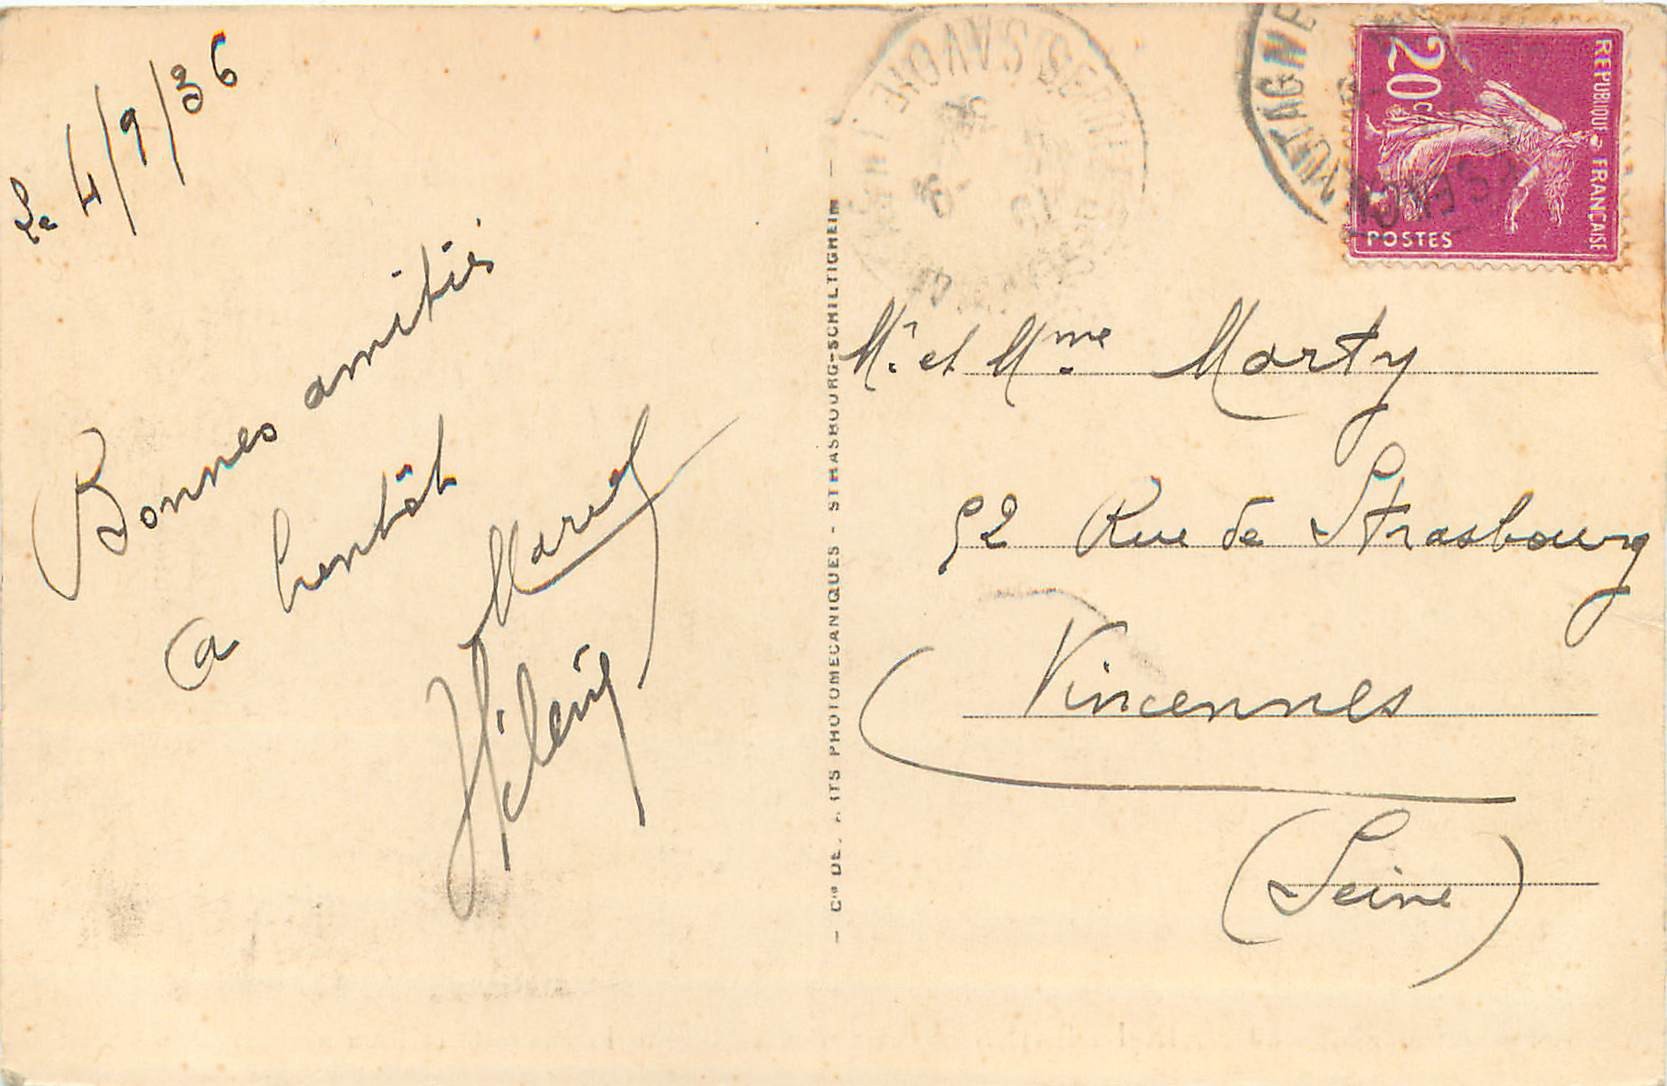 Le 4/9/36
Bonnes amitiés
a bientôt
Marcel
Hélène
- Cie DES ARTS PHOTOMECANIQUES - STRASBOURG-SCHILTIGHEIM -
REPUBLIQUE FRANÇAISE
20c
POSTES
SAVOIE
Mr. et Mme Marty
52 Rue de Strasbourg
Vincennes
(Seine)